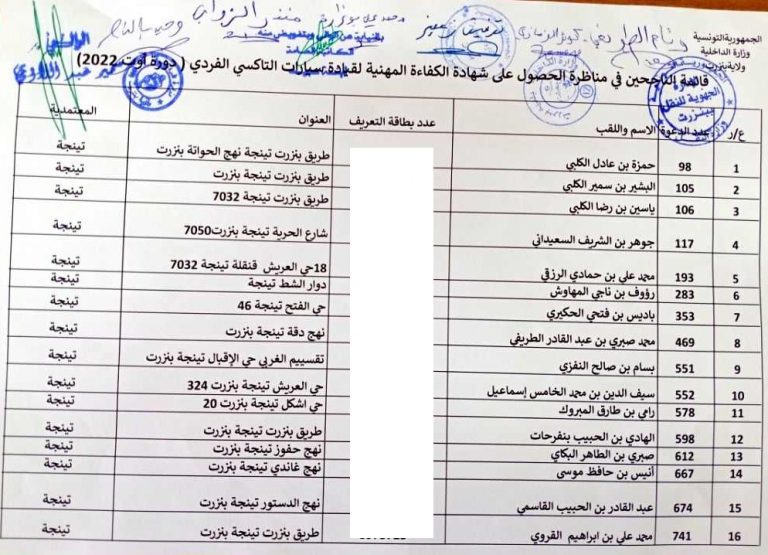 الجمهورية التونسية
وزارة الداخلية
ولاية بنزرت
قائمة الناجحين في مناظرة الحصول على شهادة الكفاءة المهنية لقيادة سيارات التاكسي الفردي ( دورة أوت 2022)
ع/ر عدد الدعوة الاسم واللقب عدد بطاقة التعريف العنوان المعتمدية
1 98 حمزة بن عادل الكلبي طريق بنزرت تينجة نهج الحوانة بنزرت تينجة
2 105 البشير بن سمير الكلبي طريق بنزرت تينجة بنزرت تينجة
3 106 ياسين بن رضا الكلبي طريق بنزرت تينجة 7032 تينجة
4 117 جوهر بن الشريف السعيداني شارع الحرية تينجة بنزرت7050 تينجة
5 193 محمد علي بن حمادي الرزقي 18حي العريش قنقلة تينجة 7032 تينجة
6 283 رؤوف بن ناجي المهاوش دوار الشط تينجة تينجة
7 353 باديس بن فتحي الحكيري حي الفتح تينجة 46 تينجة
8 469 محمد صبري بن عبد القادر الطريفي نهج دقة تينجة بنزرت تينجة
9 551 بسام بن صالح النفزي تقسييم الغربي حي الإقبال تينجة بنزرت تينجة
10 552 سيف الدين بن محمد الخامس إسماعيل حي العريش تينجة بنزرت 324 تينجة
11 578 رامي بن طارق المبروك حي اشكل تينجة بنزرت 20 تينجة
12 598 الهادي بن الحبيب بنفرحات طريق بنزرت تينجة بنزرت تينجة
13 612 صبري بن الطاهر البكاي نهج حفوز تينجة بنزرت تينجة
14 667 أنيس بن حافظ موسى نهج غاندي تينجة بنزرت تينجة
15 674 عبد القادر بن الحبيب القاسمي نهج الدستور تينجة بنزرت تينجة
16 741 محمد علي بن ابراهيم القروي طريق بنزرت تينجة بنزرت تينجة